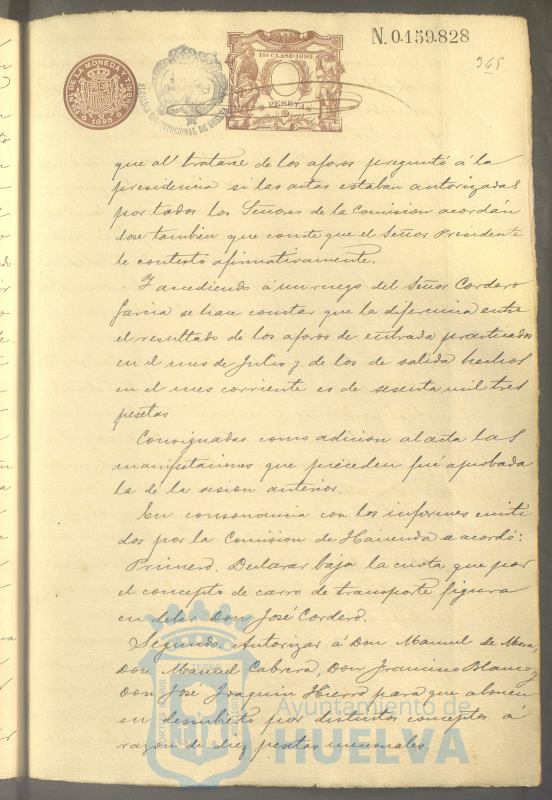 N. 0.159.828
345
NAL DE LA MONEDA Y TIMBRE
1895
ALCALDIA CONSTITUCIONAL DE HUELVA
11ª CLASE-1895
2 PESETAS
que al tratarse de los aforos preguntó á la
presidencia si las actas estaban autorizadas
por todos los Señores de la Comision acordán
dose tambien que conste que el Señor Presidente
le contestó afirmativamente.
Y accediendo á un ruego del Señor Cordero
Garcia se hace constar que la diferencia entre
el resultado de los aforos de entrada practicados
en el mes de Julio y de los de salida hechos
en el mes corriente es de sesenta mil tres
pesetas
Consignadas como adicion al acta las
manifestaciones que preceden fué aprobada
la de la sesion anterior.
En consonancia con los informes emiti
dos por la Comision de Hacienda se acordó:
Primero. Declarar baja la cuota que por
el concepto de carro de transporte figura
en deber Don José Cordero.
Segundo. Autorizar á Don Manuel de Mora,
Don Manuel Cabrera, Don Francisco Blanco y
Don José Joaquin Hierro para que abonen
su descubierto por distintos conceptos á
razon de diez pesetas mensuales.
Ayuntamiento de
HUELVA